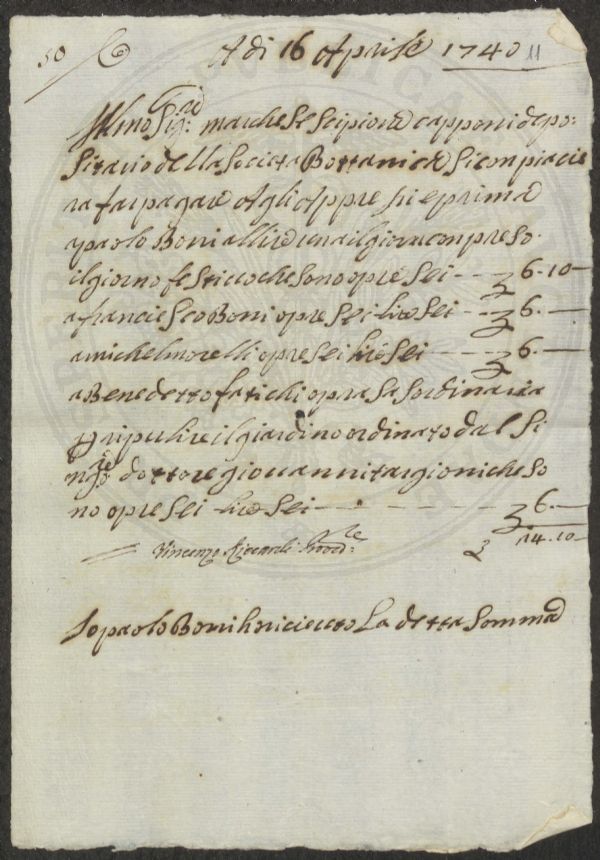 50 / C Adi 16 Aprile 1740 11
Illmo Sigre marchese Scipione capponi depo:
Sitario della Societa Bottanicha Si conpiacie
ra far pagare Agli Appresi e prima
A paolo Boni a lire una il giorno conpreso
il giorno festivo che sono opre Sei - - - 6.10 -
a francieSco Boni opre Sei lire Sei - - 6. -
a michel morelli opre Sei lire Sei - - - 6. -
a Benedetto fatichi opra straordinaria
p ripulire il giardino ordinato dal Si
ngre dottore giovanni targioni che So
no opre Sei lire Sei - - - - - 6. -
Vincenzo Riccardi Provre 14.10 -
Io paolo Boni ho ricievuto La detta Somma